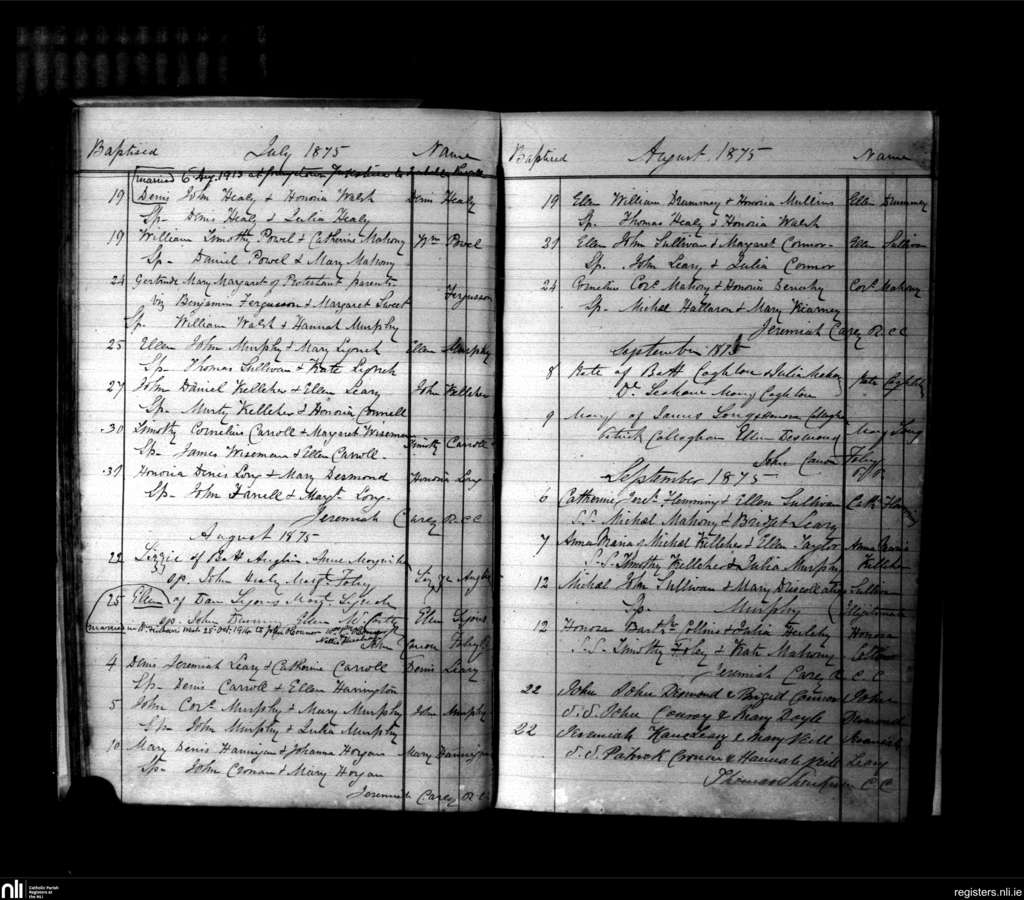 Baptised July 1875 Name
married 6 Aug. 1913 at
19 Denis John Healy & Honoria Walsh Denis Healy
Sp- Denis Healy & Julia Healy
19 William Timothy Powel & Catherine Mahony Wm Powel
Sp- Daniel Powel & Mary Mahony
24 Gertrude Mary Margaret of Protestant parents
viz Benjamin Fergusson & Margaret Sweet Fergusson
Sp. William Walsh & Hannah Murphy
25 Ellen John Murphy & Mary Lynch Ellen Murphy
Sp- Thomas Sullivan & Kate Lynch
27 John Daniel Kelleher & Ellen Leary John Kelleher
Sp- Murty Kelleher & Honoria Connell
30 Timothy Cornelius Carroll & Margaret Wiseman Timothy Carroll
Sp- James Wiseman & Ellen Carroll
31 Honoria Denis Long & Mary Desmond Honoria Long
Sp- John Farrell & Margt. Long
Jeremiah Carey R.CC
August 1875
22 Lizzie of Batt Anglin
sp. John Healy Margt. Foley
25 Ellen of Dan Lyons Margt. Lynch Ellen Lyons
sp. John Ellen McCarthy
married 25 Oct. 1914 to John O'Connor
John Canon Foley
4 Denis Jeremiah Leary & Catherine Carroll Denis Leary
Sp- Denis Carroll & Ellen Harrington
5 John Cors. Murphy & Mary Murphy John Murphy
Sp- John Murphy & Julia Murphy
10 Mary Denis Hannigan & Johanna Horgan Mary Hannigan
Sp- John Cronan & Mary Horgan
Jeremiah Carey R.CC
Baptised August, 1875 Name
19 Ellen William Drummey & Honoria Mullins Ellen Drummey
Sp. Thomas Healy & Honoria Walsh
31 Ellen John Sullivan & Margaret Connor Ellen Sullivan
Sp. John Leary & Julia Connor
24 Cornelius Cors. Mahony & Honoria Cors. Mahony
Sp- Michel & Mary Kearney
Jeremiah Carey R.CC
September 1875
8 Kate of Batt Coghlan & Julia Kate
Mary Coghlan
9 Mary of James Long Mary Long
Patrick Callaghan Ellen Desmond
John Canon Foley
September 1875
6 Catherine Flemming & Ellen Sullivan Cath
S.S. Michel Mahony & Bridget Leary
7 Anna Maria Michel Kelleher & Ellen Taylor Anna Maria
S.S. Timothy Kelleher & Julia Murphy Kelleher
12 Michel John Sullivan & Mary Driscoll Sullivan
Sp. Murphy Illegitimate
12 Honora Barthw. Collins & Julia Herlihy Honora
S.S. Timothy Foley & Kate Mahony Collins
Jeremiah Carey R.C.C
22 John John Desmond & Brigid Connor John
S.S. John Conroy & Mary Doyle Desmond
22 Jeremiah Leary & Mary Neill Jeremiah
S.S. Patrick Cronan & Hannah Neill Leary
Thomas C.C
nli Catholic Parish
Registers at
the NLI
registers.nli.ie